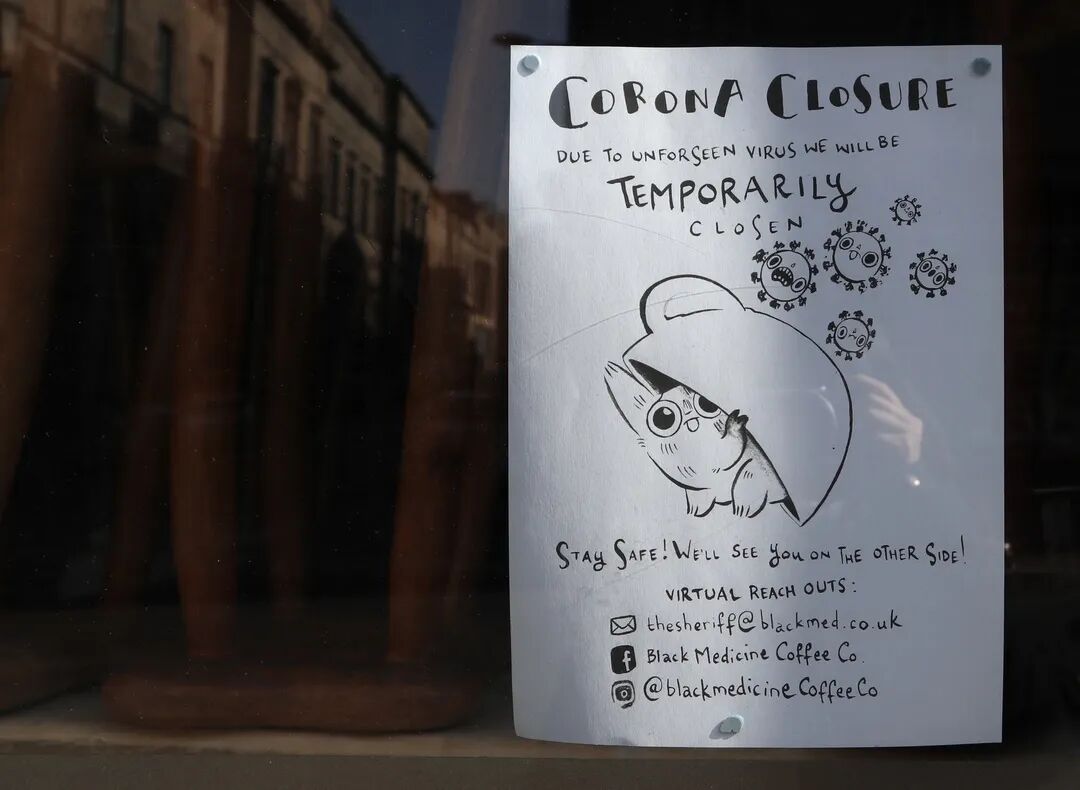 CORONA CLOSURE
DUE TO UNFORSEEN VIRUS WE WILL BE
TEMPORARILY
CLOSEN
STAY SAFE! WE'LL SEE YOU ON THE OTHER SIDE!
VIRTUAL REACH OUTS:
thesheriff@blackmed.co.uk
Black Medicine Coffee Co.
@blackmedicineCoffeeCo